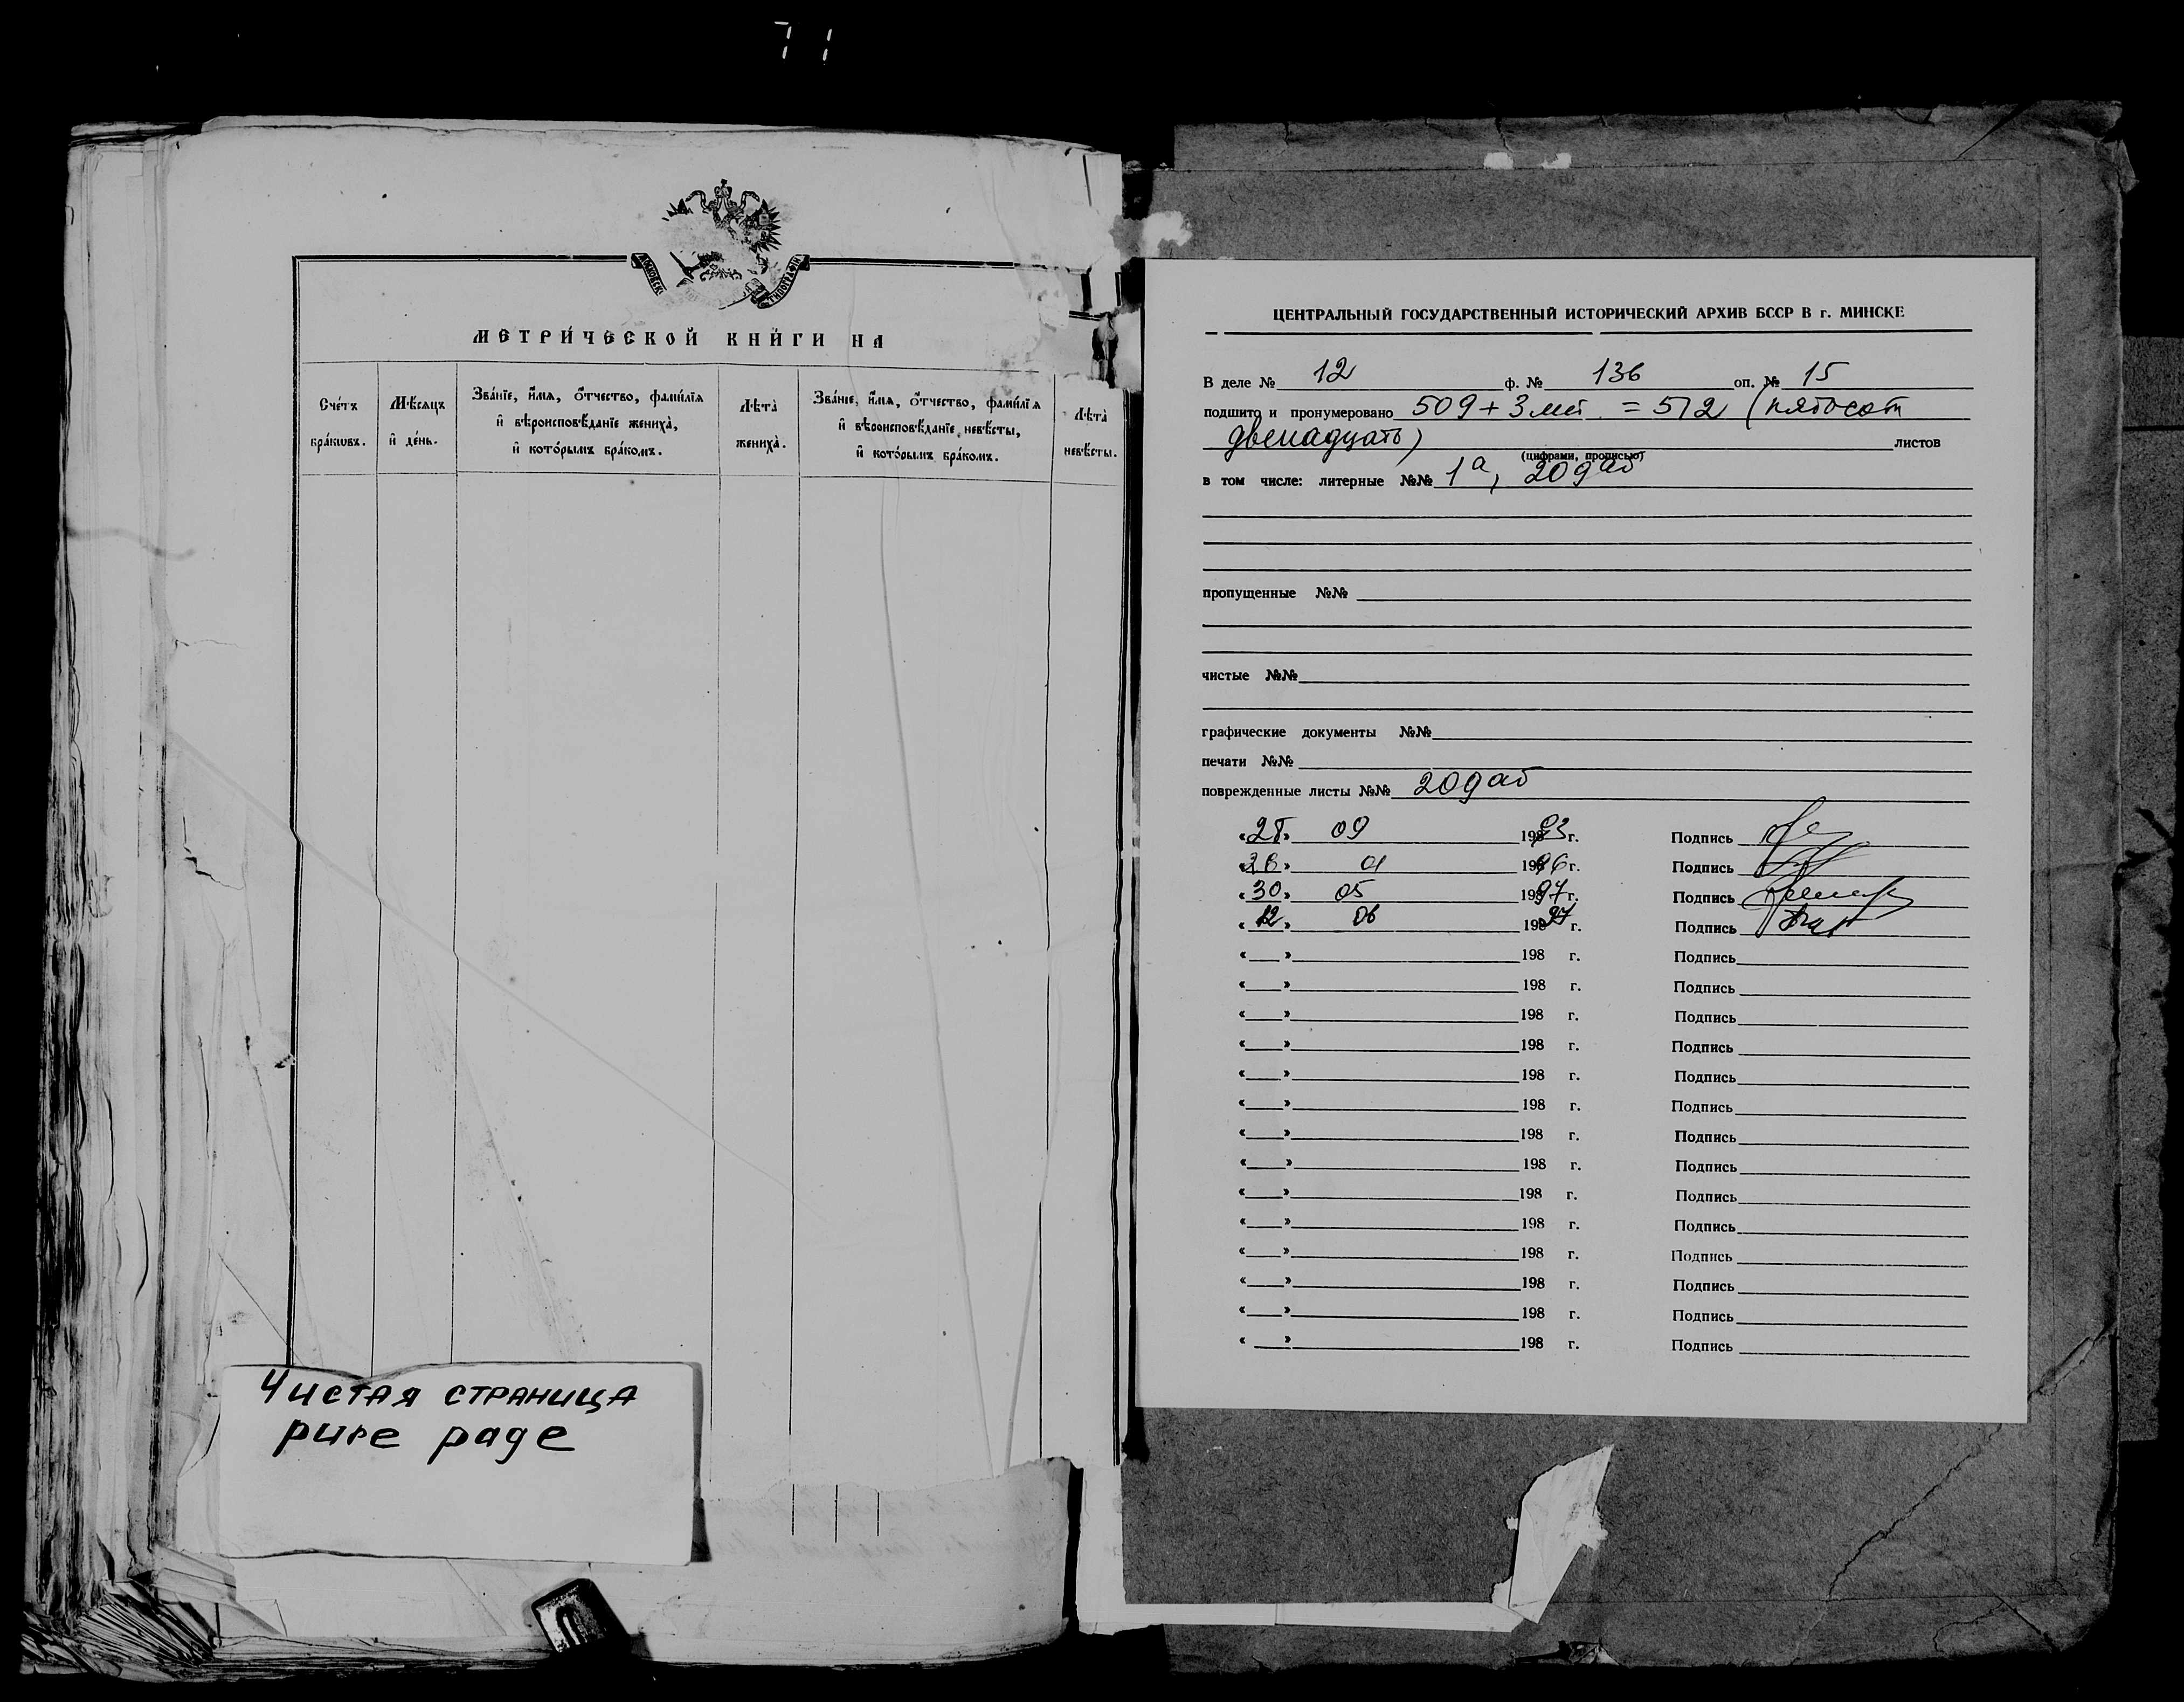 71
МОСКОВСК ТИПОГРАФІИ
МЕТРИ́ЧЕСКОЙ КНИ́ГИ НА
Сче́тъ бра́кѡвъ.
Мѣ́сяцъ и҆ де́нь.
Зва́нїе, и҆́мѧ, ѻ҆́тчество, фами́лїѧ и҆ вѣроисповѣ́данїе жениха̀, и҆ кото́рымъ бра́комъ.
Лѣта̀ жениха̀.
Зва́нїе, и҆́мѧ, ѻ҆́тчество, фами́лїѧ и҆ вѣроисповѣ́данїе невѣ́сты, и҆ кото́рымъ бра́комъ.
Лѣта̀ невѣ́сты.
Чистая страница
pure page
ЦЕНТРАЛЬНЫЙ ГОСУДАРСТВЕННЫЙ ИСТОРИЧЕСКИЙ АРХИВ БССР В г. МИНСКЕ
В деле № 12 ф. № 136 оп. № 15
подшито и пронумеровано 509 + 3 лит. = 512 (пятьсот
двенадцать) листов
(цифрами, прописью)
в том числе: литерные №№ 1а, 209аб
пропущенные №№
чистые №№
графические документы №№
печати №№
поврежденные листы №№ 209аб
« » 09 1993 г. Подпись
« » 01 1996 г. Подпись
«30» 05 1997 г. Подпись
«12» 06 1997 г. Подпись
« » 198 г. Подпись
« » 198 г. Подпись
« » 198 г. Подпись
« » 198 г. Подпись
« » 198 г. Подпись
« » 198 г. Подпись
« » 198 г. Подпись
« » 198 г. Подпись
« » 198 г. Подпись
« » 198 г. Подпись
« » 198 г. Подпись
« » 198 г. Подпись
« » 198 г. Подпись
« » 198 г. Подпись